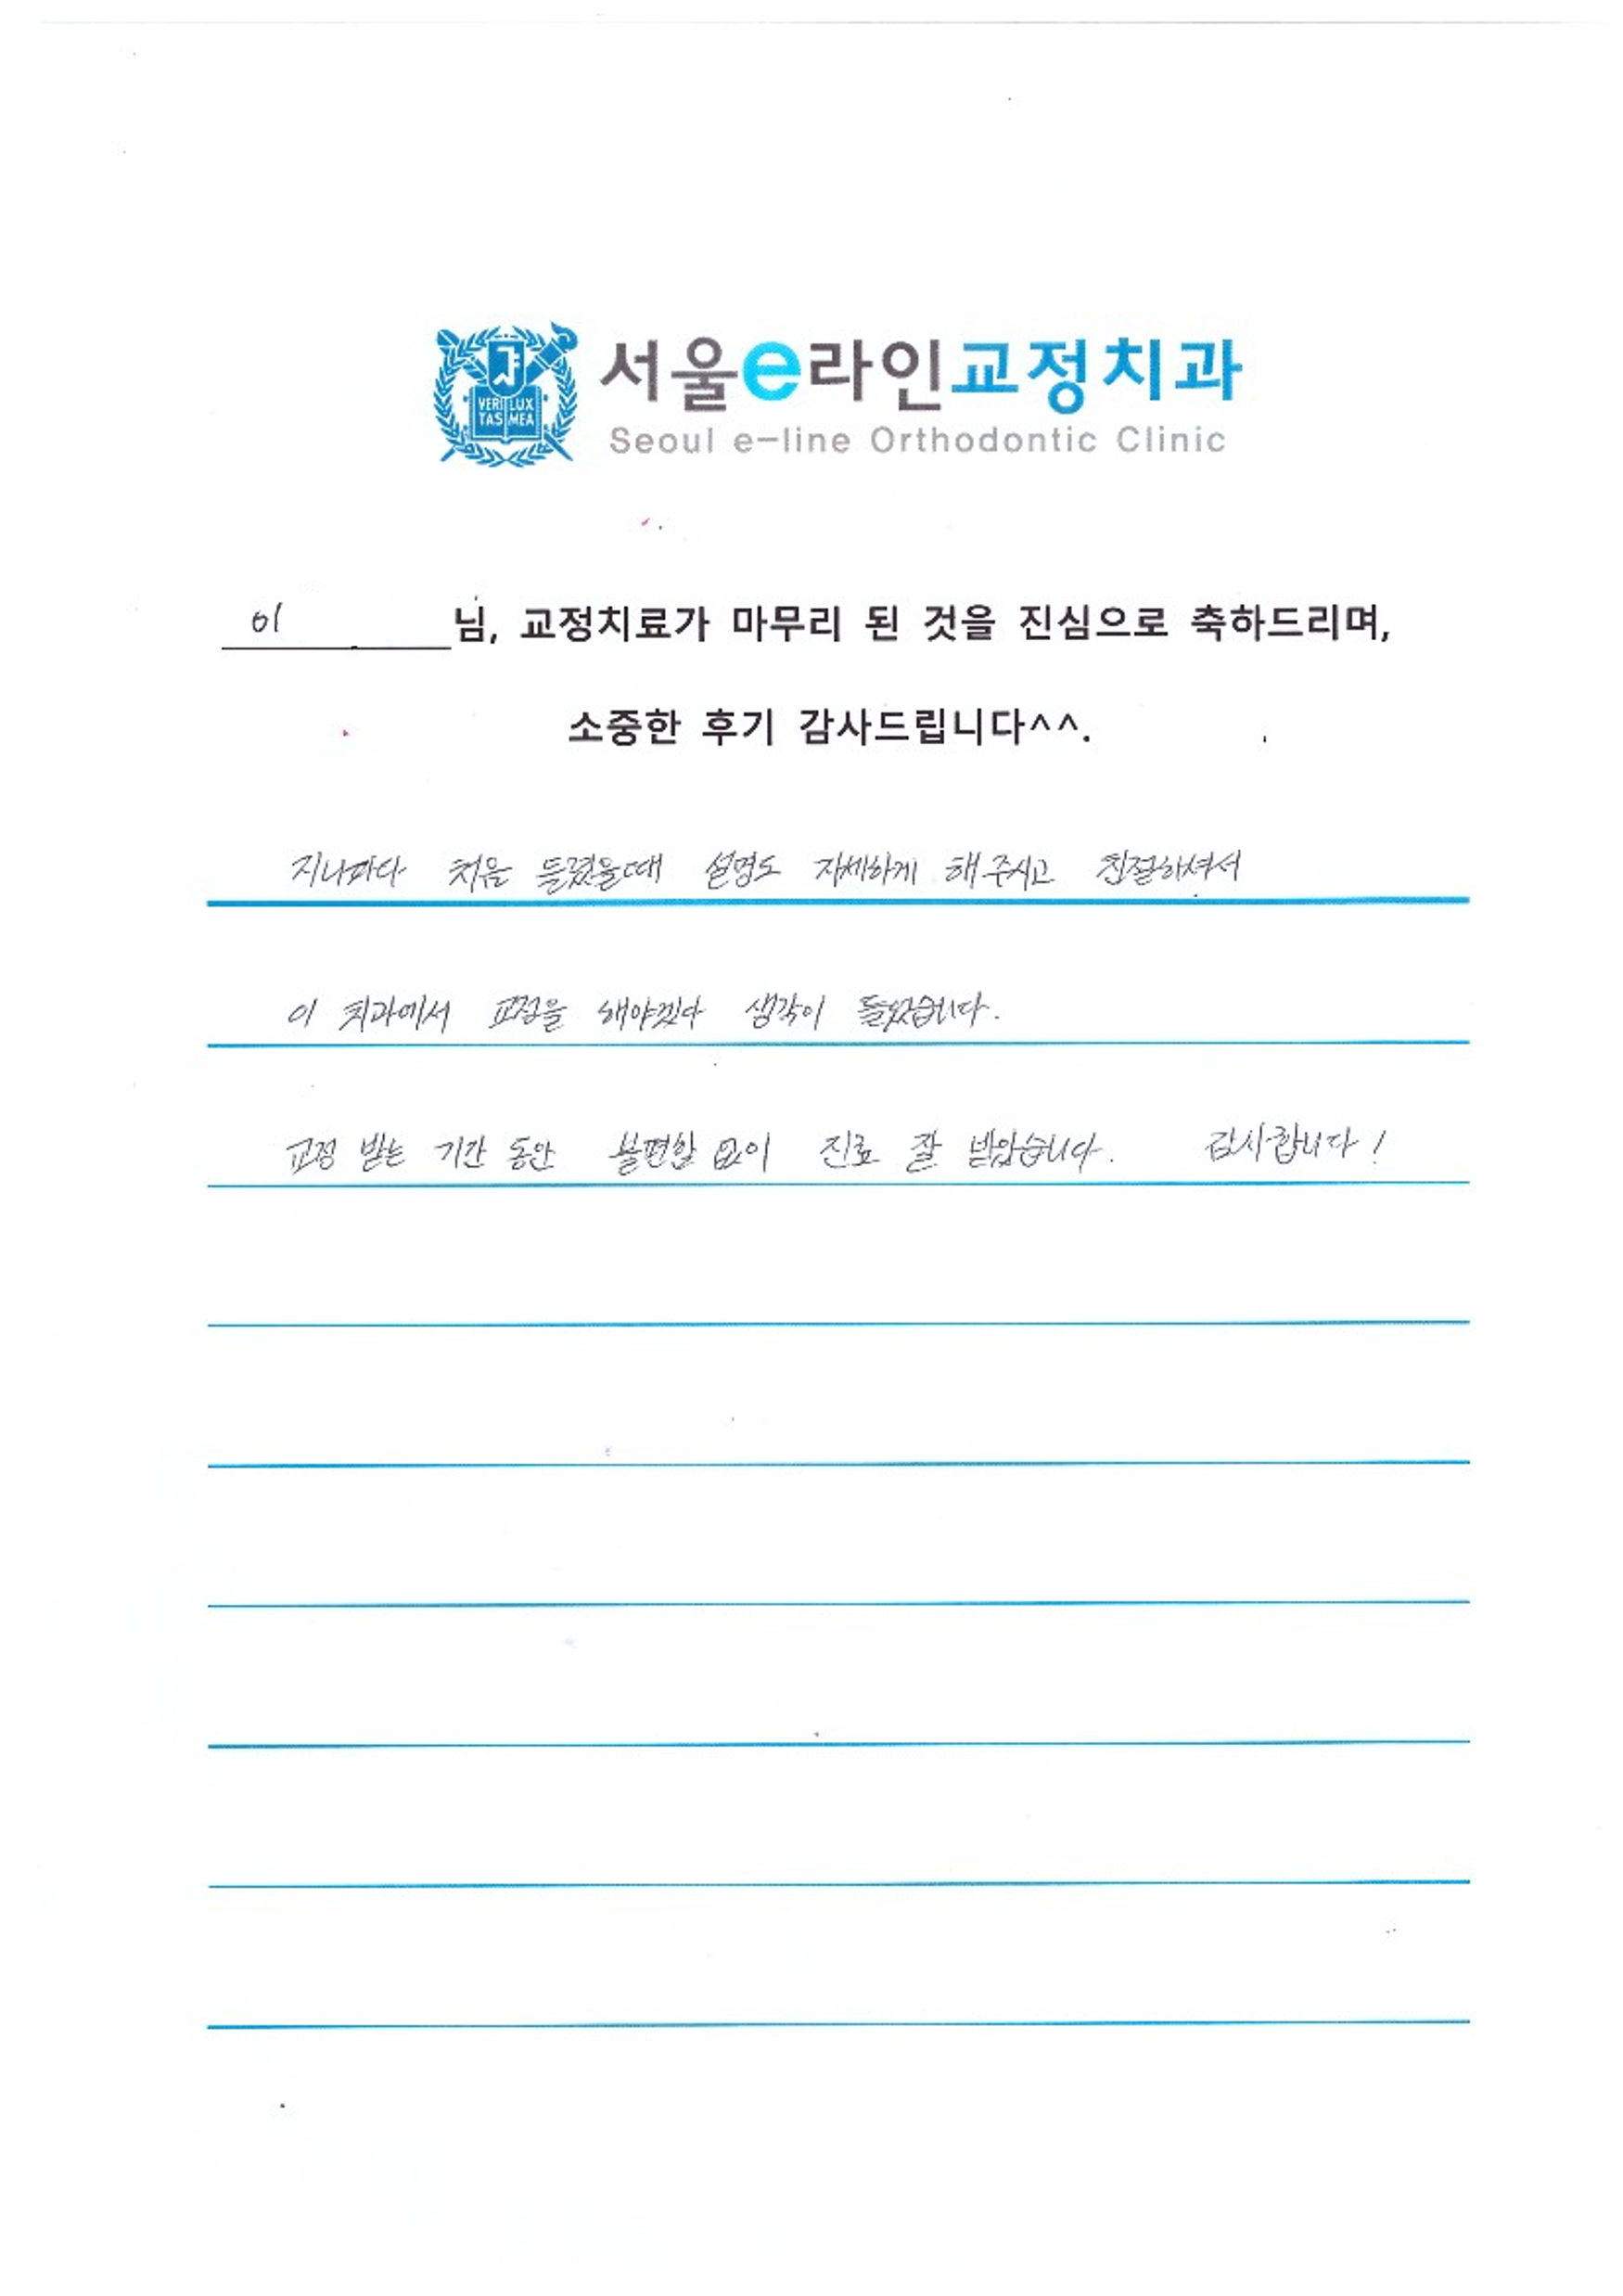 VERI LUX
TAS MEA
서울e라인교정치과
Seoul e-line Orthodontic Clinic
이 님, 교정치료가 마무리 된 것을 진심으로 축하드리며,
소중한 후기 감사드립니다^^.
지나파다 처음 들렸을때 설명도 자세하게 해주시고 친절하셔서
이 치과에서 교정을 해야겠다 생각이 들었습니다.
교정 받는 기간 동안 불편함 없이 진료 잘 받았습니다. 감사합니다!